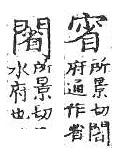 所景切
府通作省
所景切
水府也